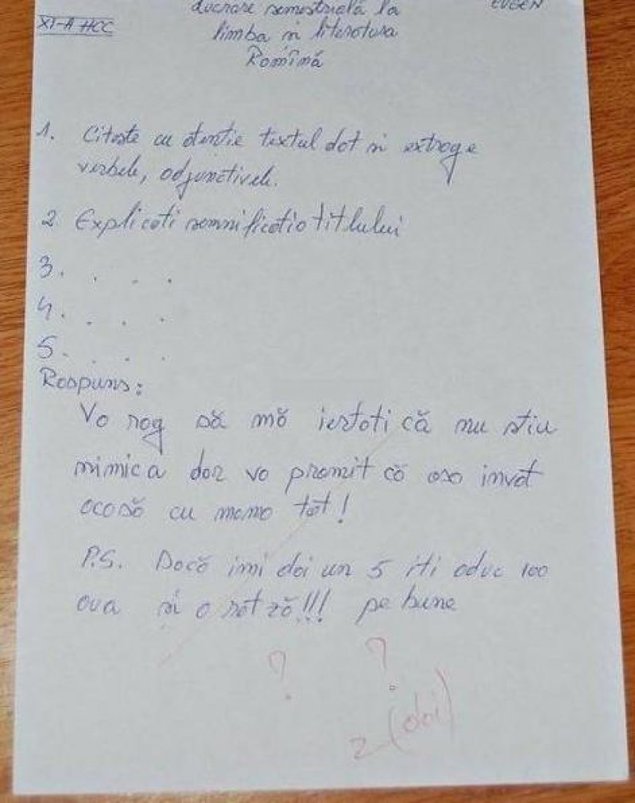 EUGEN
XI-A HCC
Lucrare semestrială la
limba si literatura
Romînă
1. Citeste cu atentie textul dat si extrage
verbele, adjunctivele.
2. Explicati semnificatia titlului
3. . . . .
4. . . . .
5. . . . .
Raspuns:
Va rog să mă iertati că nu stiu
nimica dar va promit că aso invat
acasă cu mama tăt!
P.S. Dacă imi dai un 5 iti aduc 100
oua si o ratză!!! pe bune
? ?
2 (doi)